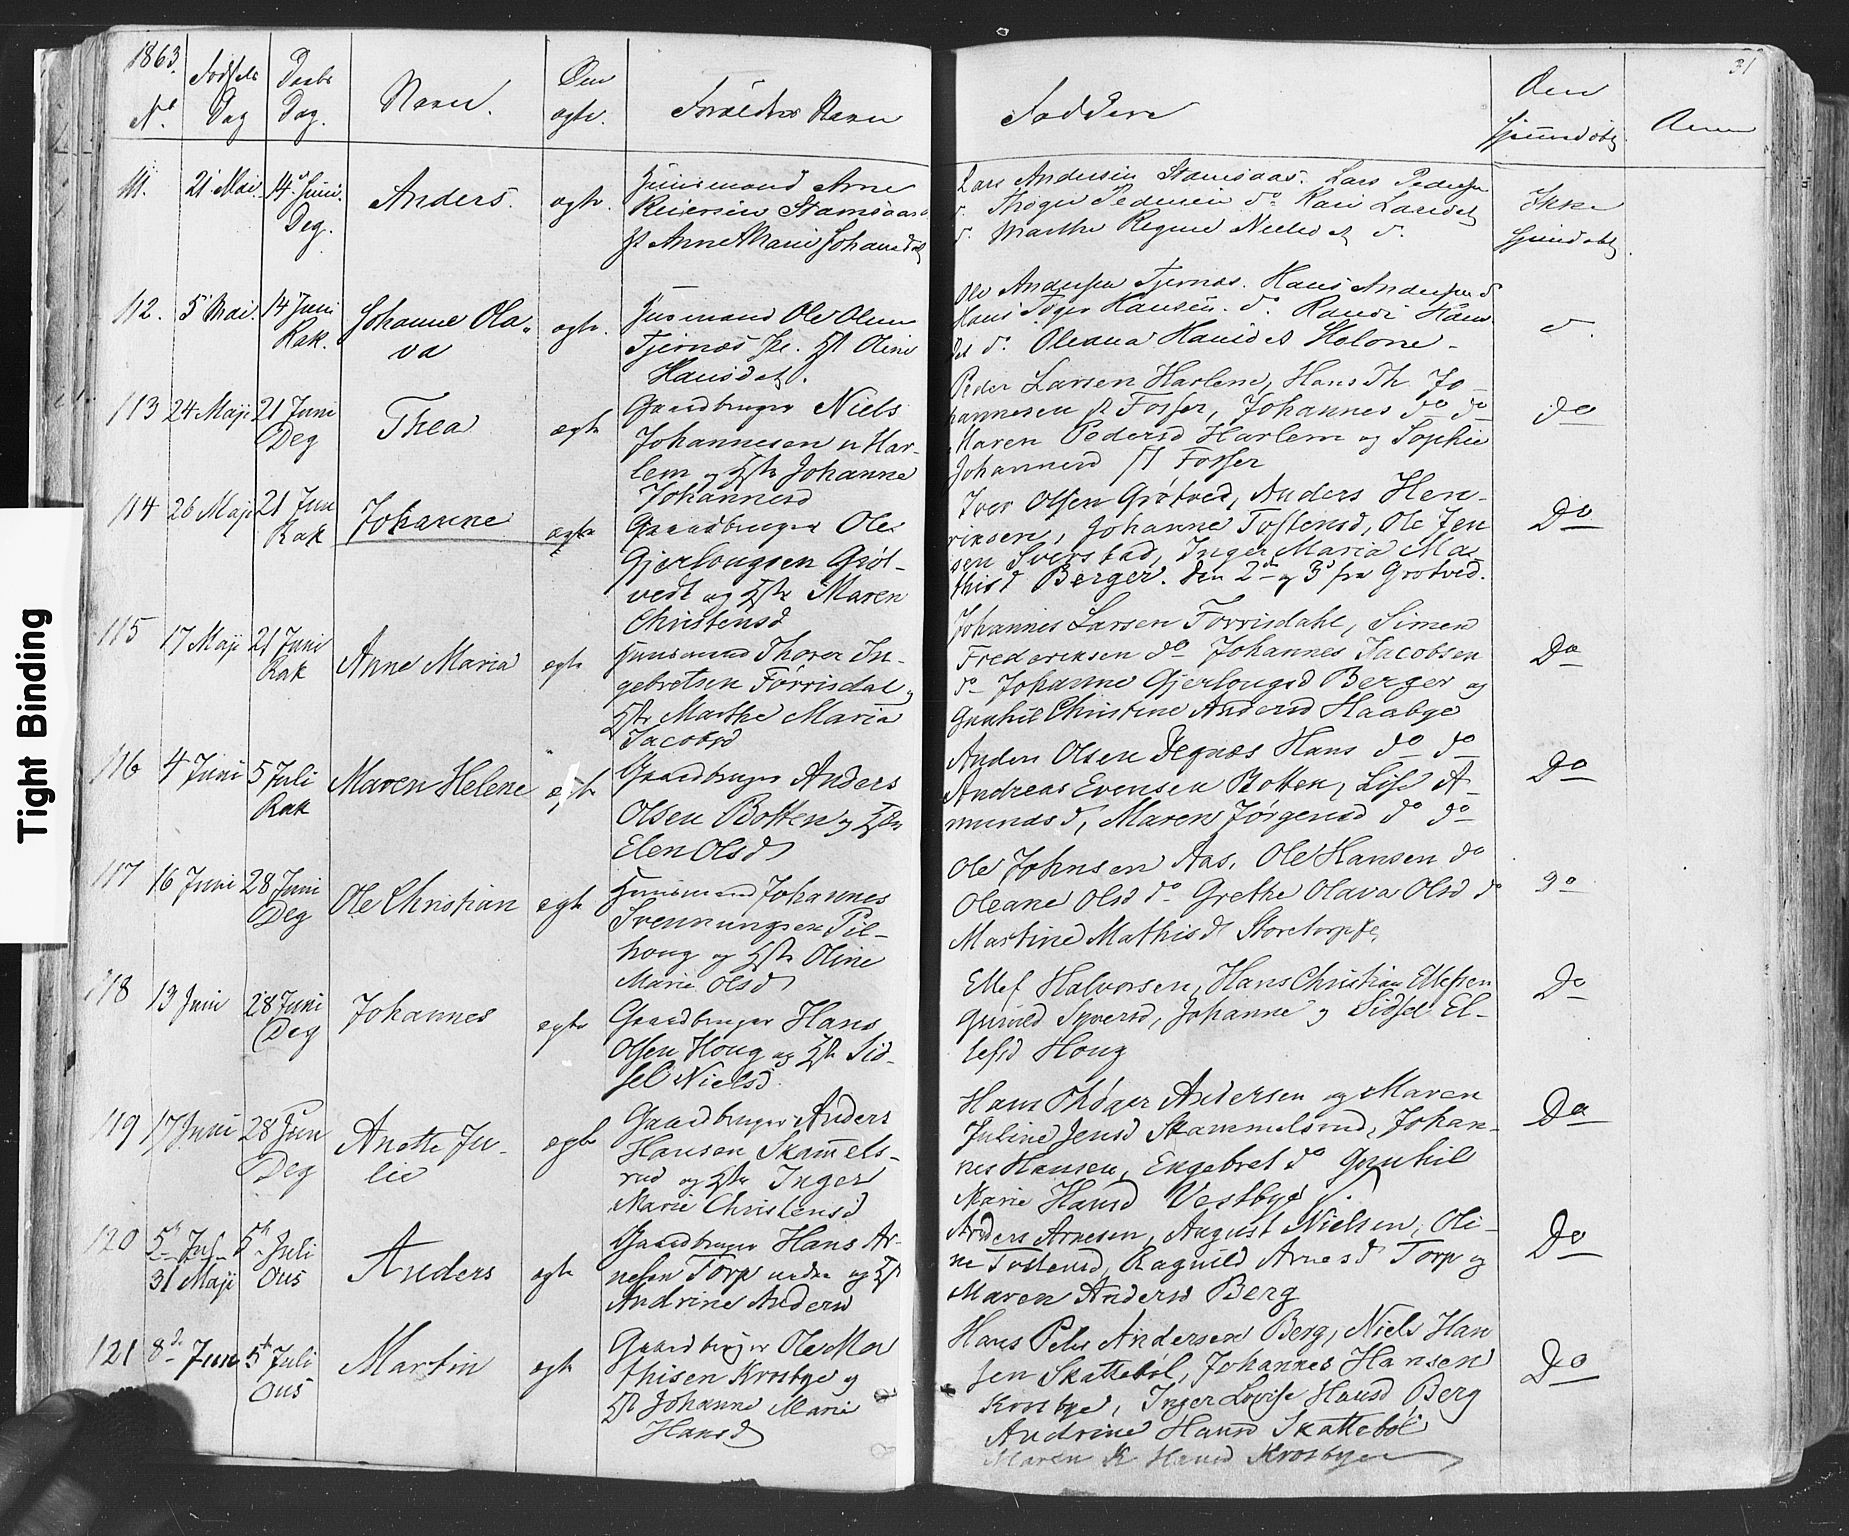 1863.
Nº
Fødsels Dag
Daabs Dag.
Navn.
Om ægte.
Forældres Navn
Faddere
Om hjemmedøbt
Anm
31
111. 21 Mai. 14 Juni. Deg. Anders. ægte.
Huusmand Arne
Reiersen Stamsaas
H Anne Marie Johansd
Lars Andersen Stamsaas. Lars Pedersen
d. Thoger Pedersen do Kari Larsd
d. Marthe Regine Nielsd d.
Ikke hjemdøbt
112. 5 Mai. 14 Juni Rak. Johanne Olava ægte.
Husmand Ole Olsen
Tjernæs H Oline
Hansdat.
Ole Andersen Tjernæs. Hans Andersen d
Hans Toger Hansen. do. Randi Hans-
dat do. Oleana Hansdat Holone.
d.
113 24 Maji 21 Juni Deg Thea ægte
Gaardbruger Niels
Johannesen n Har-
lem og Hstr Johanne
Johannesd
Peder Larsen Harlem, Hans Th. Jo-
hannesen Fosser, Johannes do do
Maren Pedersd Harlem og Sophie
Johannesd Fosser
do
114 26 Maji 21 Juni Rak Johanne ægte
Gaardbruger Ole
Gjerlougsen Grøt-
vedt og Hstr Maren
Christensd
Iver Olsen Grøtved, Anders Hen-
riksen, Johanne Tostensd, Ole Jen
sen Sverstad, Inger Maria Ma-
thisd Berger. den 2den og 3d fra Grøtved.
Do
115 17 Maji 21 Juni Rak Anne Maria ægte
Huusmand Thorer In-
gebretsen Førrisdal og
Hstr Marthe Maria
Jacobsd
Johannes Larsen Førrisdahl, Simen
Frederiksen do Johannes Jacobsen
do Johanne Gjerlougsd Berger og
Gunhil Christine Andersd Haabye
Do
116 4 Juni 5 Juli Rak Maren Helene ægte
Gaardbruger Anders
Olsen Botten og Hstr
Elen Olsd
Anders Olsen Degnæs Hans do do
Andreas Evensen Botten, Lise A-
mundsd, Maren Jørgensd do do
Do
117 16 Juni 28 Juni Deg Ole Christian ægte
Huusmand Johannes
Svenningsen Pil-
houg og Hstr Oline
Marie Olsd
Ole Johnsen Aas, Ole Hansen do
Oleane Olsd do Grethe Olava Olsd do
Martine Mathisd Storetorp
do
118 13 Juni 28 Juni Deg Johannes ægte
Gaardbruger Hans
Olsen Houg og Hstr Sid-
sel Nielsd
Ellef Halvorsen, Hans Christian Ellefsen
Gunild Syversd, Johanne og Sidsel El-
lefsd Houg
Do
119 17 Juni 28 Jun Deg Anette Julie ægte
Gaardbruger Anders
Hansen Skammels-
rud og Hstr Inger
Marie Christensd
Hans Thøger Andersen og Maren
Juline Jensd Skammelsrud, Johan-
nes Hansen, Engebret do Gunhil
Marie Hansd Vestbye
Do
120 31 Maji 5th Juli Ous Anders ægte
Gaardbruger Hans Ar-
nesen Torp nedre og H
Andrine Andersd
Anders Arnesen, August Nielsen, Oli-
ne Tostensd, Ragnild Arnesd Torp og
Maren Andersd Berg
Do
121 8d Jun 5th Juli Ous Martin ægte
Gaardbruger Ole Ma
thisen Krosbye og
H Johanne Marie
Hansd
Hans Peter Andersen Berg, Niels Han
sen Skattebøl, Johannes Hansen
Krosbye, Inger Lovise Hansd Berg
Andrine Hansd Skattebøl
Maren K Hansd Krosbye
Do
Tight Binding